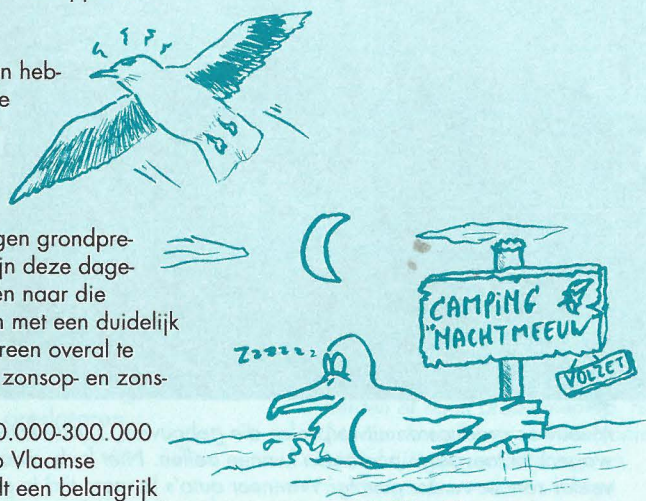 n heb-
e
gen grondpre-
ijn deze dage-
en naar die
n met een duidelijk
reen overal te
zonsop- en zons-
0.000-300.000
o Vlaamse
dt een belangrijk
Zzzzzz
CAMPING
"NACHTMEEUW"
VOLZET